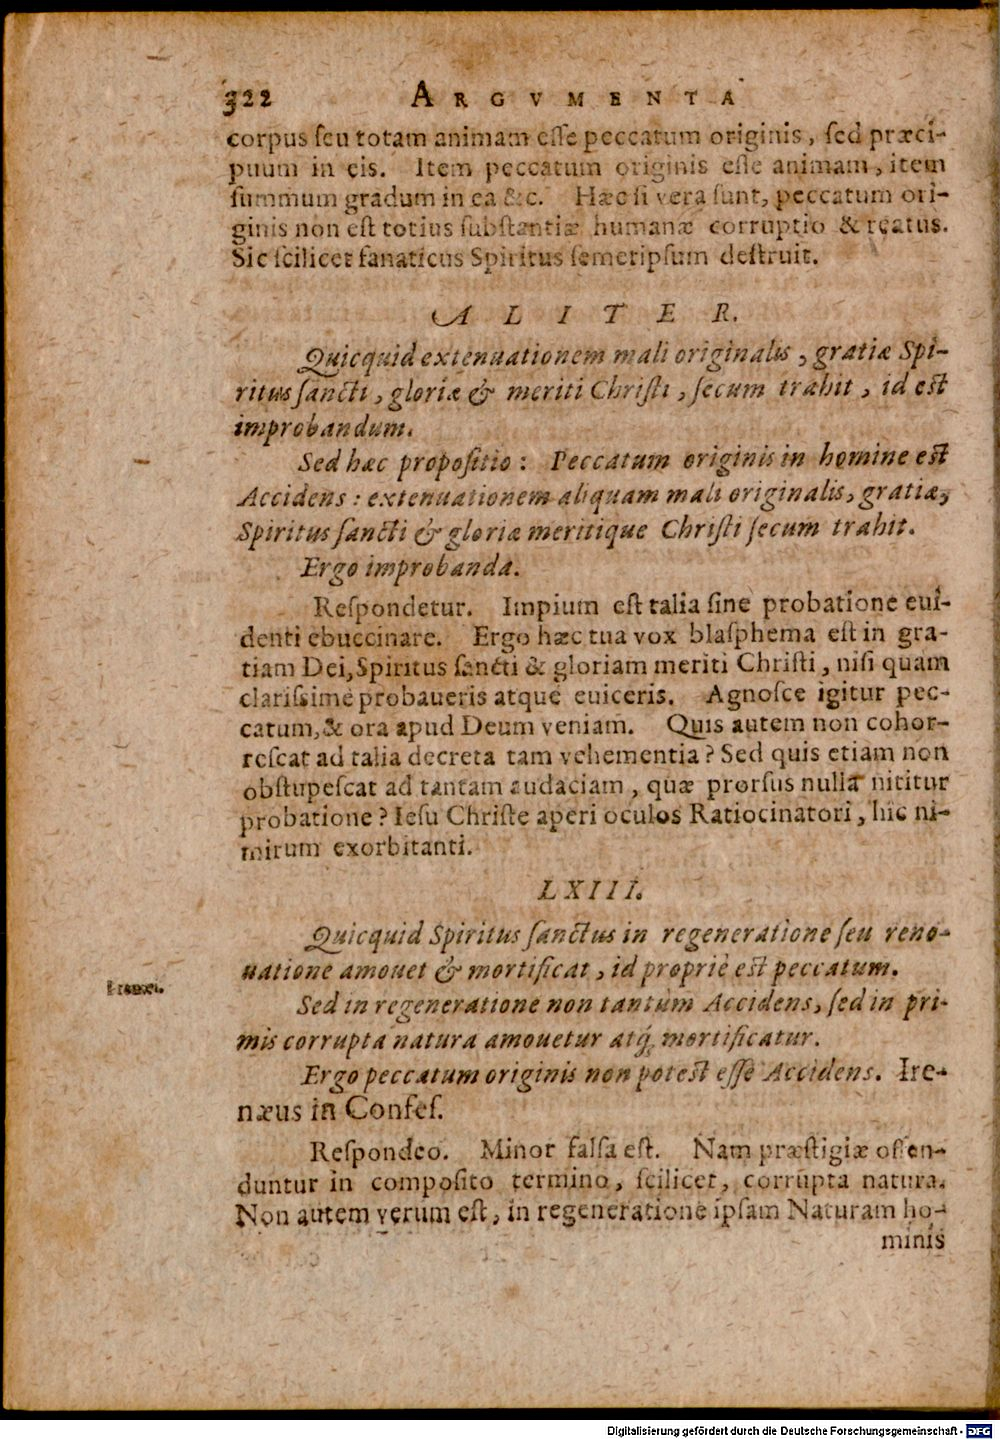 322 ARGVMENTA
corpus ſeu totam animam eſſe peccatum originis, ſed præci-
puum in eis. Item peccatum originis eſſe animam, item
ſummum gradum in ea &c. Hæc ſi vera ſunt, peccatum ori-
ginis non eſt totius ſubſtantiæ humanæ corruptio & reatus.
Sic ſcilicet fanaticus Spiritus ſemetipſum deſtruit.
ALITER.
Quicquid extenuationem mali originalis, gratiæ Spi-
ritus ſancti, gloriæ & meriti Chriſti, ſecum trahit, id eſt
improbandum.
Sed hæc propoſitio: Peccatum originis in homine eſt
Accidens: extenuationem aliquam mali originalis, gratiæ,
Spiritus ſancti & gloriæ meritique Chriſti ſecum trahit.
Ergo improbanda.
Reſpondetur. Impium eſt talia ſine probatione eui-
denti ebuccinare. Ergo hæc tua vox blaſphema eſt in gra-
tiam Dei, Spiritus ſancti & gloriam meriti Chriſti, niſi quam
clariſsimè probaueris atque euiceris. Agnoſce igitur pec-
catum, & ora apud Deum veniam. Quis autem non cohor-
reſcat ad talia decreta tam vehementia? Sed quis etiam non
obſtupeſcat ad tantam audaciam, quæ prorſus nulla nititur
probatione? Ieſu Chriſte aperi oculos Ratiocinatori, hîc ni-
mirum exorbitanti.
LXIII.
Quicquid Spiritus ſanctus in regeneratione ſeu reno-
uatione amouet & mortificat, id propriè eſt peccatum.
Sed in regeneratione non tantùm Accidens, ſed in pri-
mis corrupta natura amouetur atq́; mortificatur.
Ergo peccatum originis non poteſt eſſe Accidens. Ire-
næus in Confeſ.
Reſpondeo. Minor falſa eſt. Nam præſtigiæ oſten-
duntur in compoſito termino, ſcilicet, corrupta natura.
Non autem verum eſt, in regeneratione ipſam Naturam ho-
minis
Digitalisierung gefördert durch die Deutsche Forschungsgemeinschaft - DFG